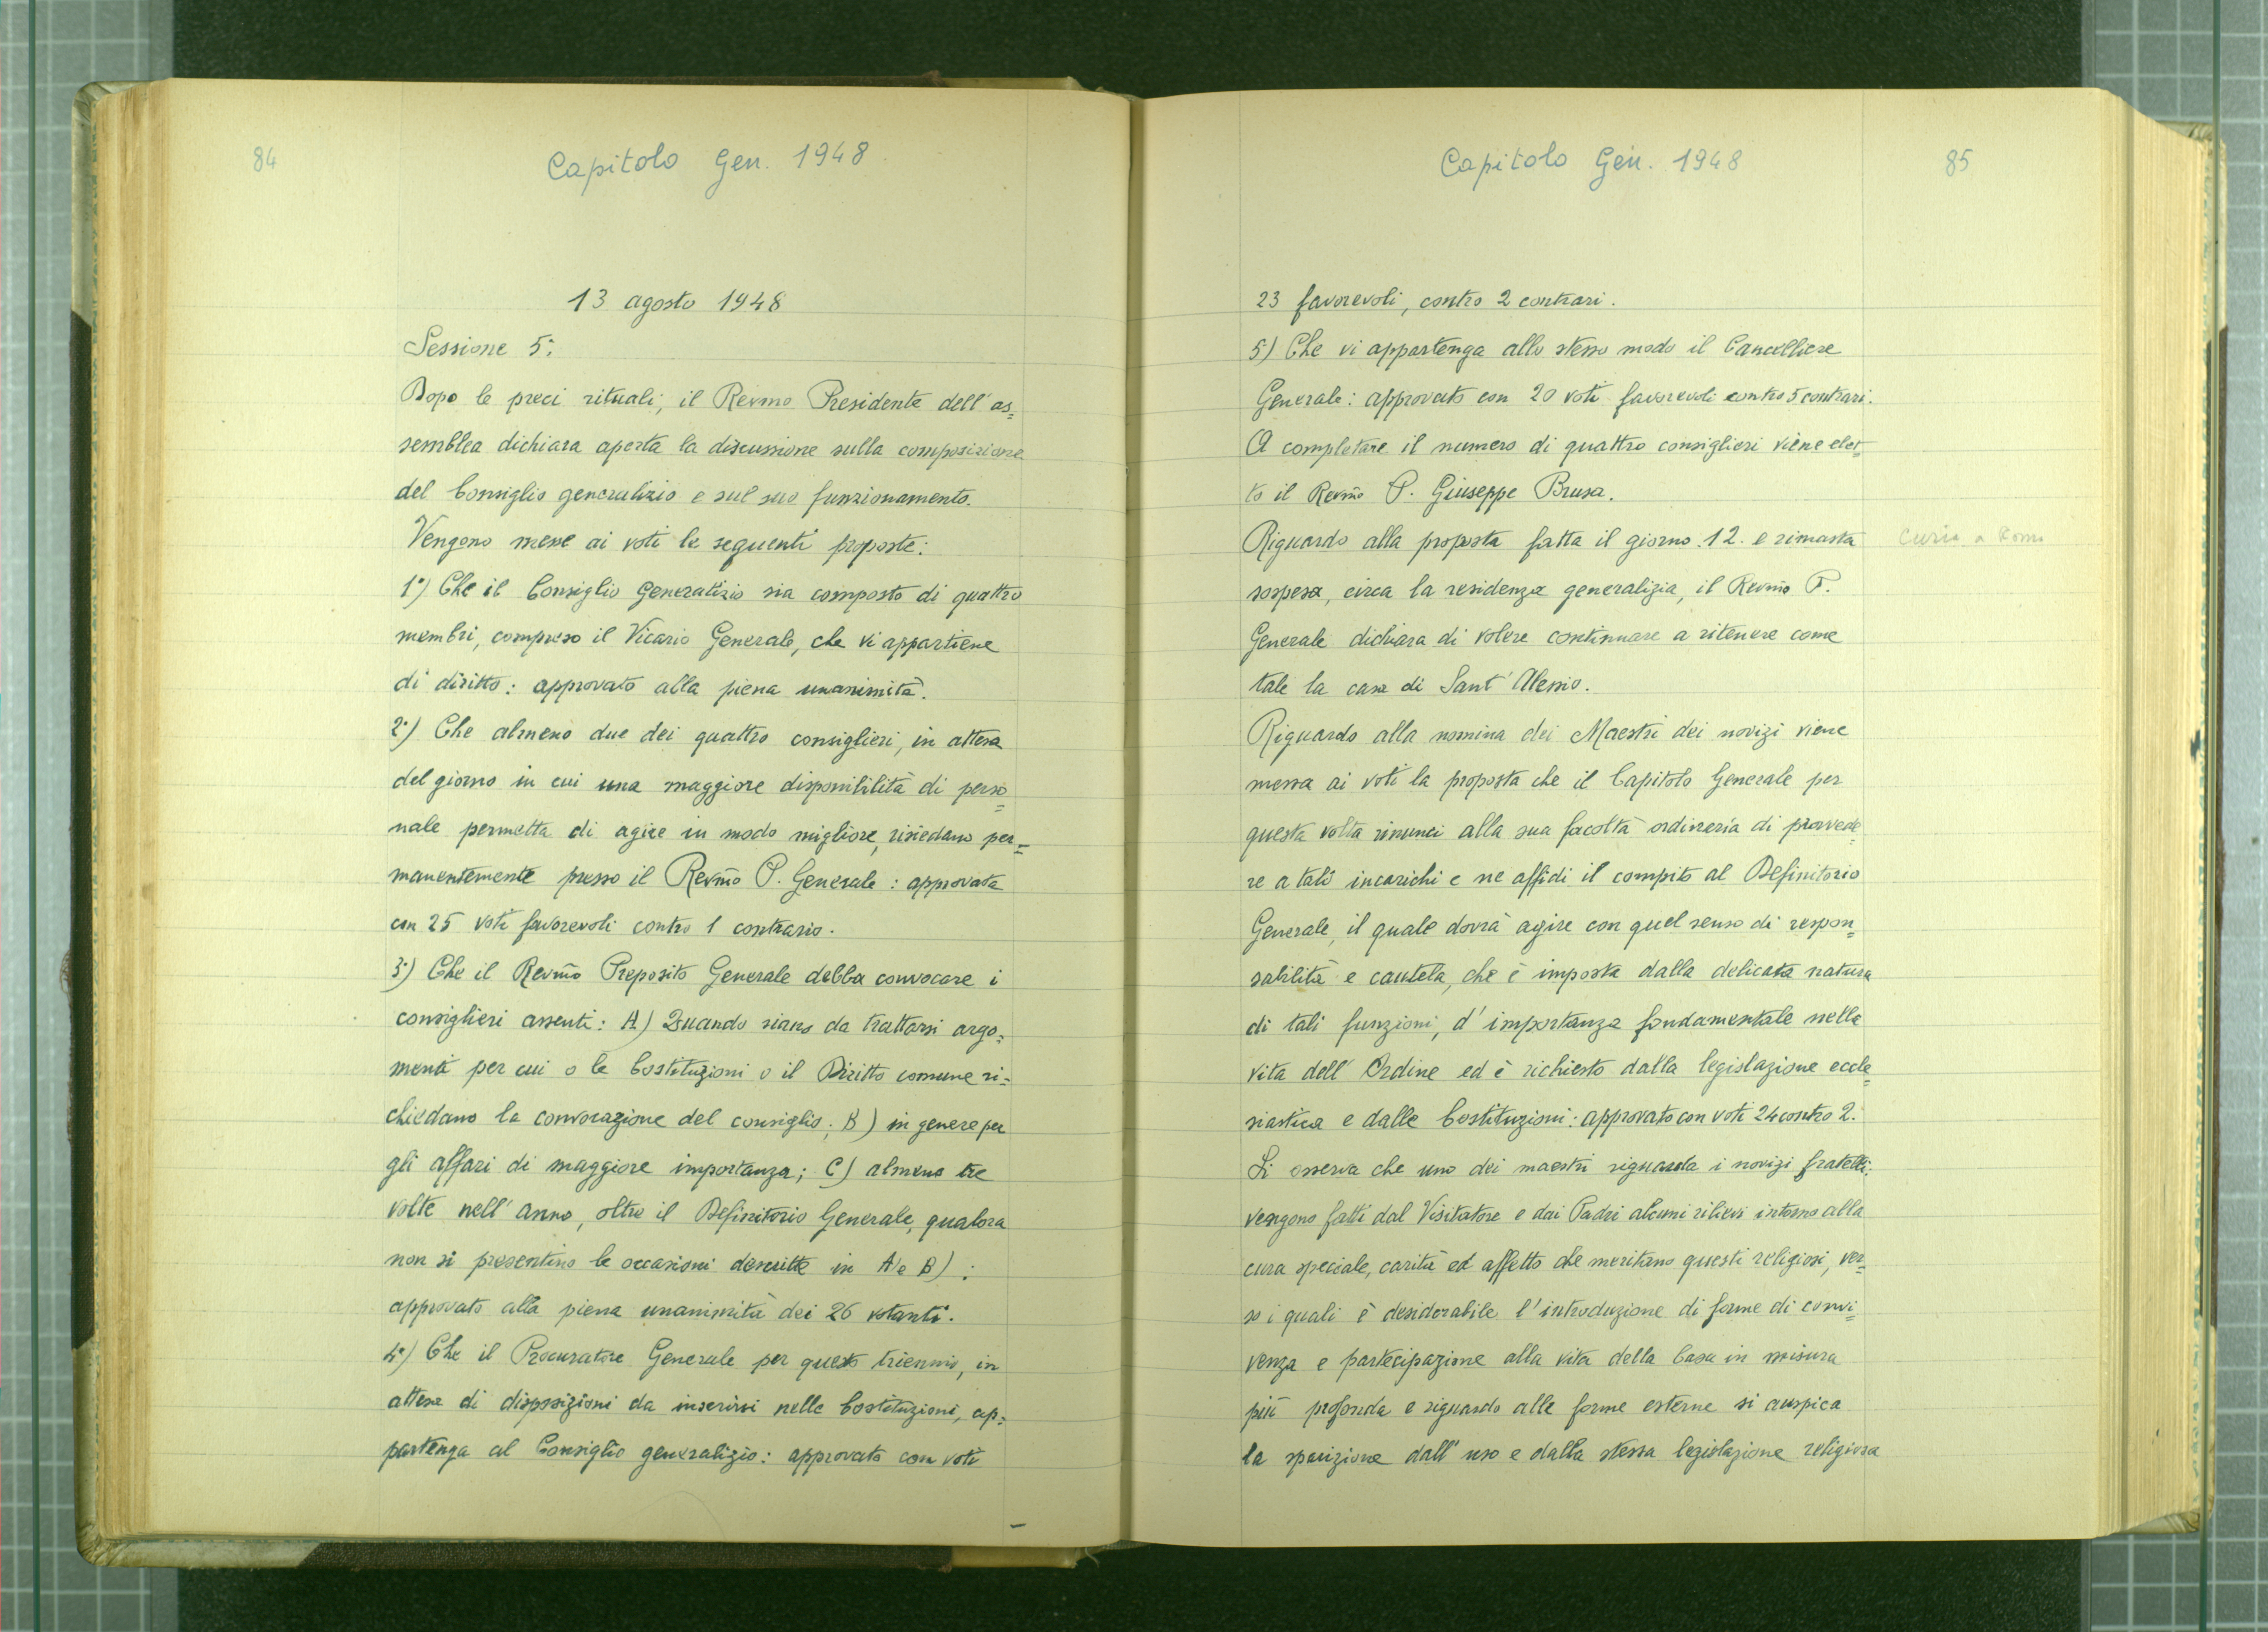 84
Capitolo Gen. 1948
13 agosto 1948
Sessione 5ª:
Dopo le preci rituali, il Revmo Presidente dell'as=
semblea dichiara aperta la discussione sulla composizione
del Consiglio generalizio e sul suo funzionamento.
Vengono messe ai voti le seguenti proposte:
1°) Che il Consiglio Generalizio sia composto di quattro
membri, compreso il Vicario Generale, che vi appartiene
di diritto: approvato alla piena unanimità.
2°) Che almeno due dei quattro consiglieri, in attesa
del giorno in cui una maggiore disponibilità di perso=
nale permetta di agire in modo migliore, risiedano per=
manentemente presso il Revm̃o P. Generale: approvata
con 25 voti favorevoli contro 1 contrario.
3°) Che il Revm̃o Preposito Generale debba convocare i
consiglieri assenti: A) Quando siano da trattarsi argo=
menti per cui o le Costituzioni o il Diritto comune ri=
chiedano la convocazione del consiglio; B) in genere per
gli affari di maggiore importanza; C) almeno tre
volte nell'anno, oltre il Definitorio Generale, qualora
non si presentino le occasioni descritte in A e B):
approvato alla piena unanimità dei 26 votanti.
4°) Che il Procuratore Generale per questo triennio, in
attesa di disposizioni da inserirsi nelle Costituzioni, ap=
partenga al Consiglio generalizio: approvato con voti
Capitolo Gen. 1948
85
23 favorevoli, contro 2 contrari.
5) Che vi appartenga allo stesso modo il Cancelliere
Generale: approvato con 20 voti favorevoli contro 5 contrari.
A completare il numero di quattro consiglieri viene elet=
to il Revm̃o P. Giuseppe Brusa.
Riguardo alla proposta fatta il giorno 12 e rimasta
Curia a Roma
sospesa, circa la residenza generalizia, il Revm̃o P.
Generale dichiara di volere continuare a ritenere come
tale la casa di Sant'Alessio.
Riguardo alla nomina dei Maestri dei novizi viene
messa ai voti la proposta che il Capitolo Generale per
questa volta rinunci alla sua facoltà ordinaria di provvede=
re a tali incarichi e ne affidi il compito al Definitorio
Generale, il quale dovrà agire con quel senso di respon=
sabilità e cautela, che è imposta dalla delicata natura
di tali funzioni, d'importanza fondamentale nella
vita dell'Ordine ed è richiesto dalla legislazione eccle=
siastica e dalle Costituzioni: approvato con voti 24 contro 2.
Si osserva che uno dei maestri riguarda i novizi fratelli;
vengono fatti dal Visitatore e dai Padri alcuni rilievi intorno alla
cura speciale, carità ed affetto che meritano questi religiosi, ver=
so i quali è desiderabile l'introduzione di forme di convi=
venza e partecipazione alla vita della Casa in misura
più profonda e riguardo alle forme esterne si auspica
la sparizione dall'uso e dalla stessa legislazione religiosa